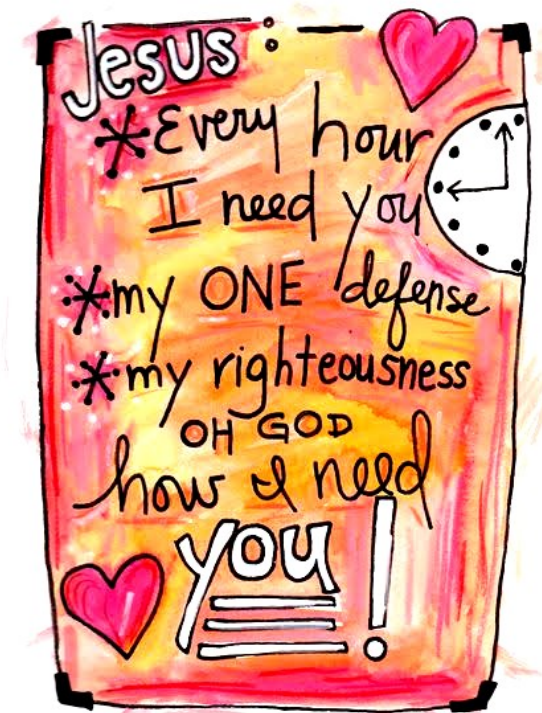 Jesus:
*Every hour
I need you
*my ONE defense
*my righteousness
OH GOD
how I need
you!